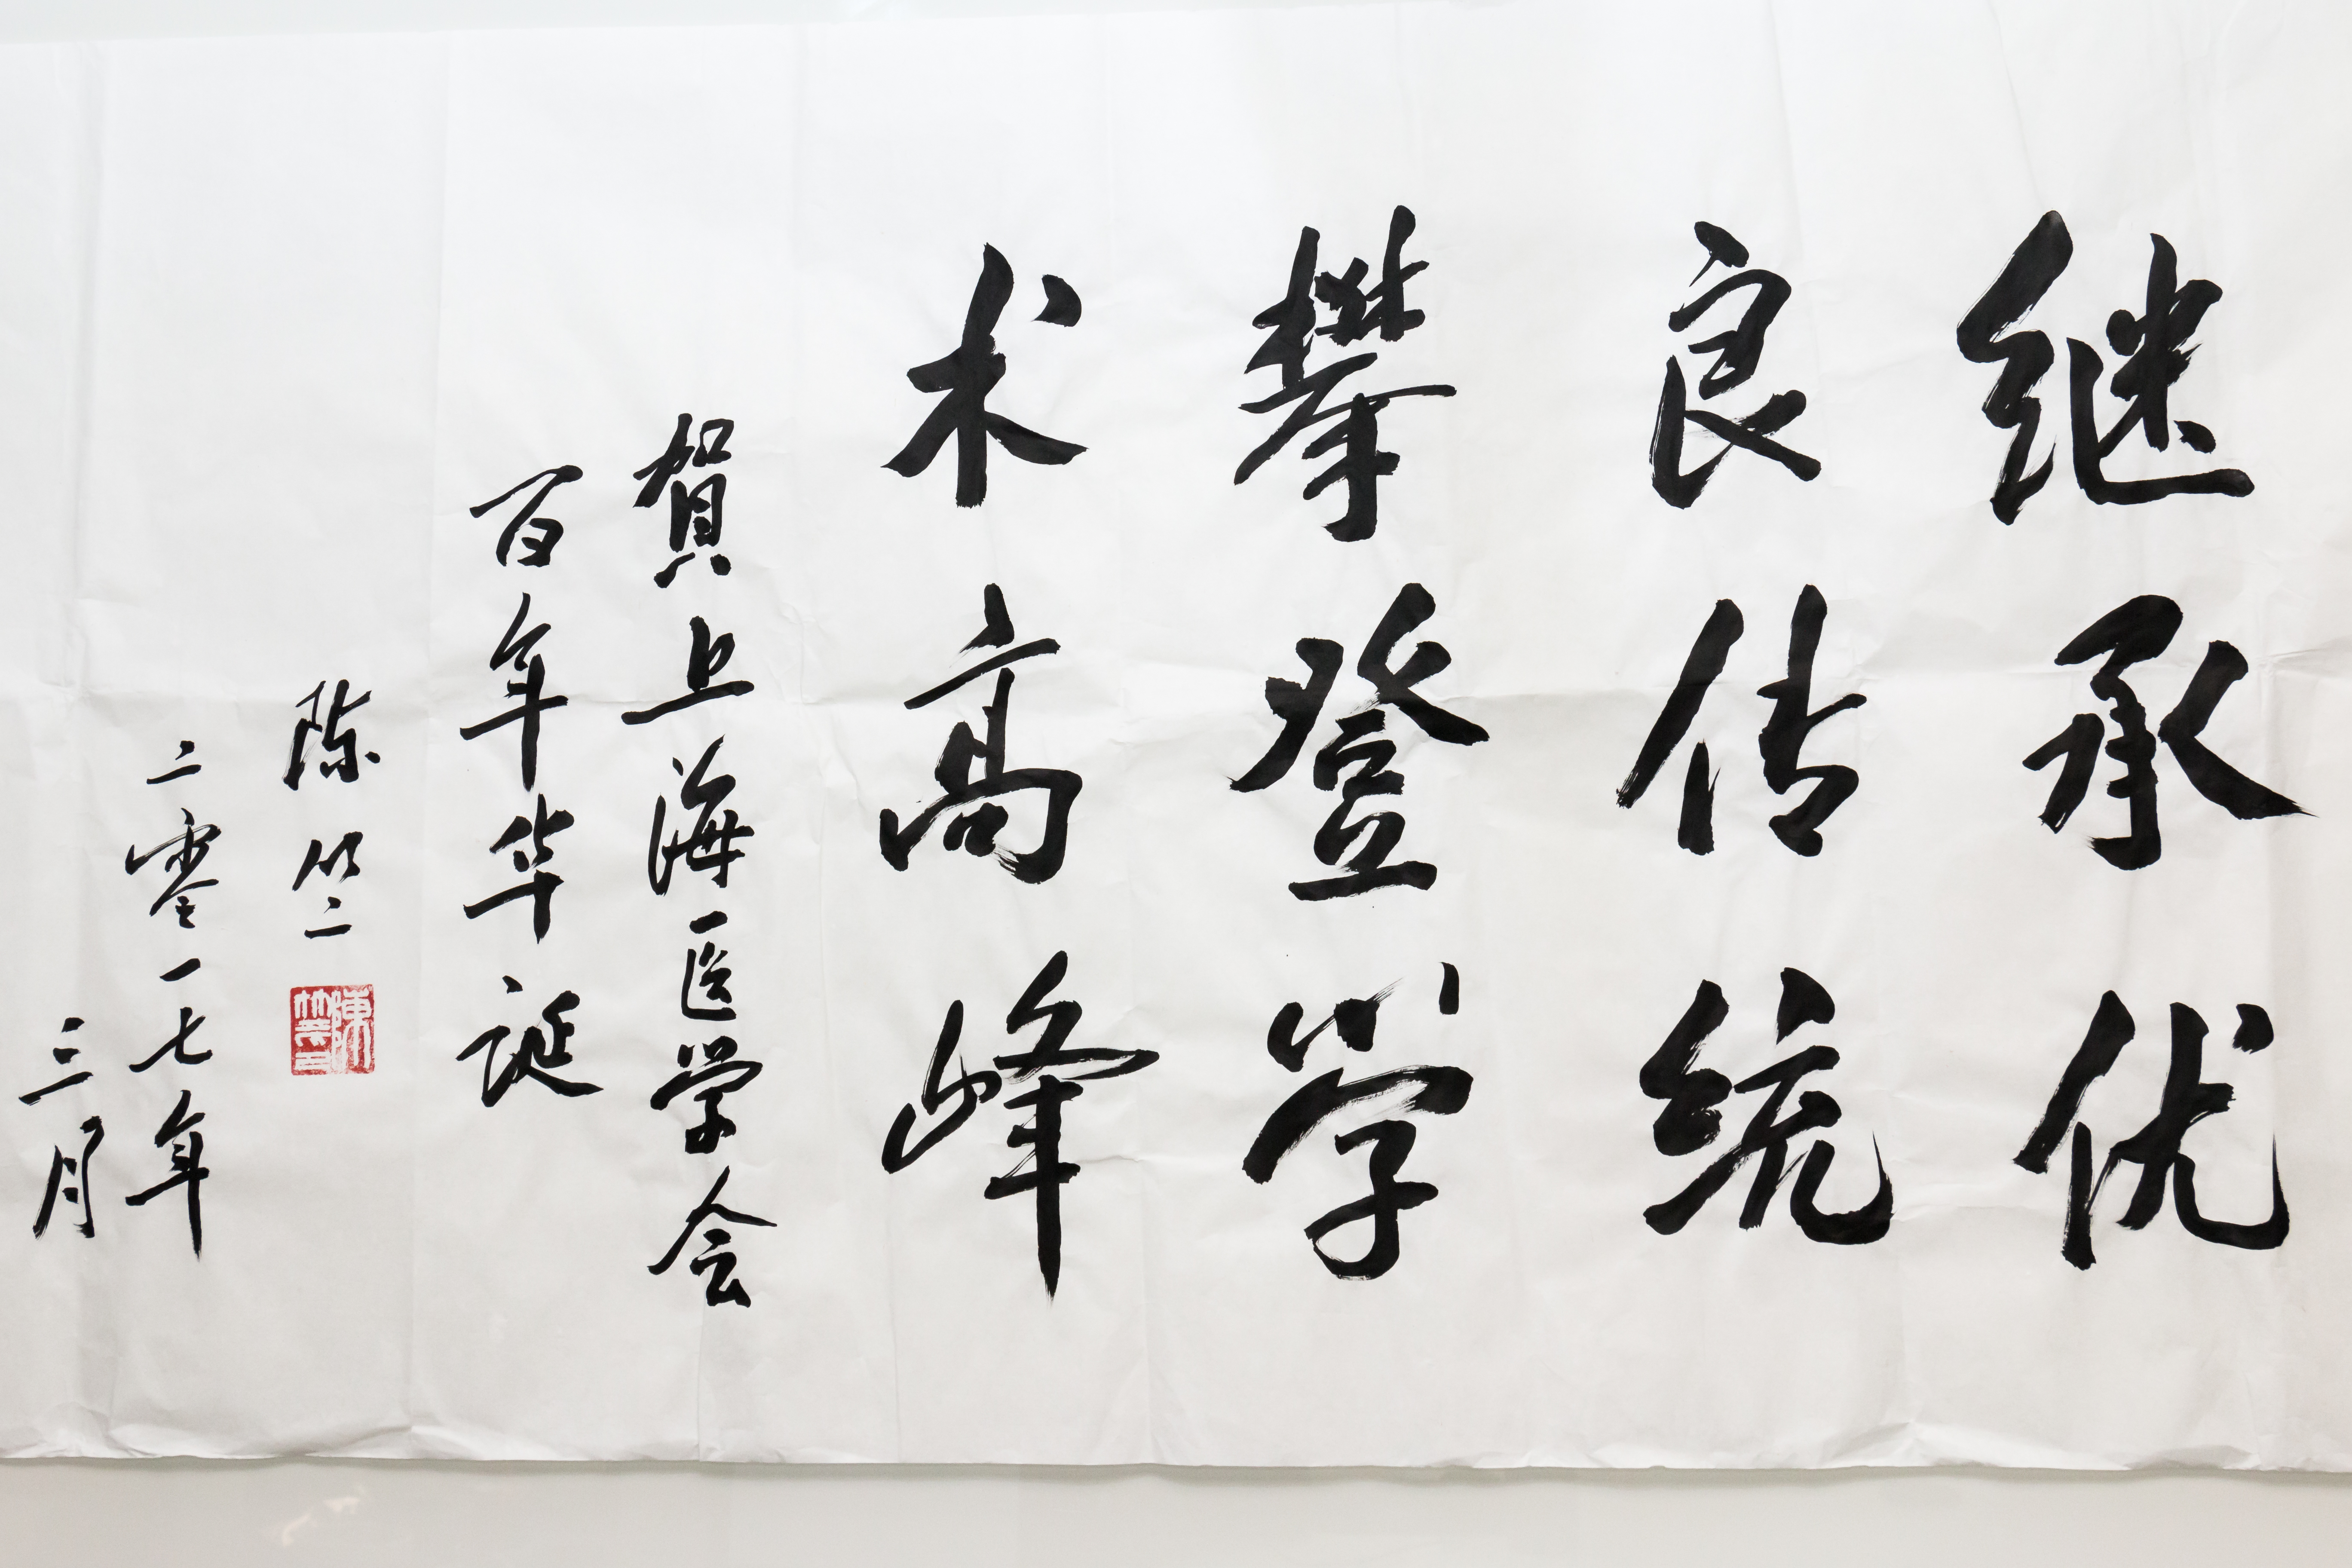 继承优
良传统
攀登学
术高峰
賀上海医学会
百年华诞
陈竺
陳竺印
二零一七年
三月